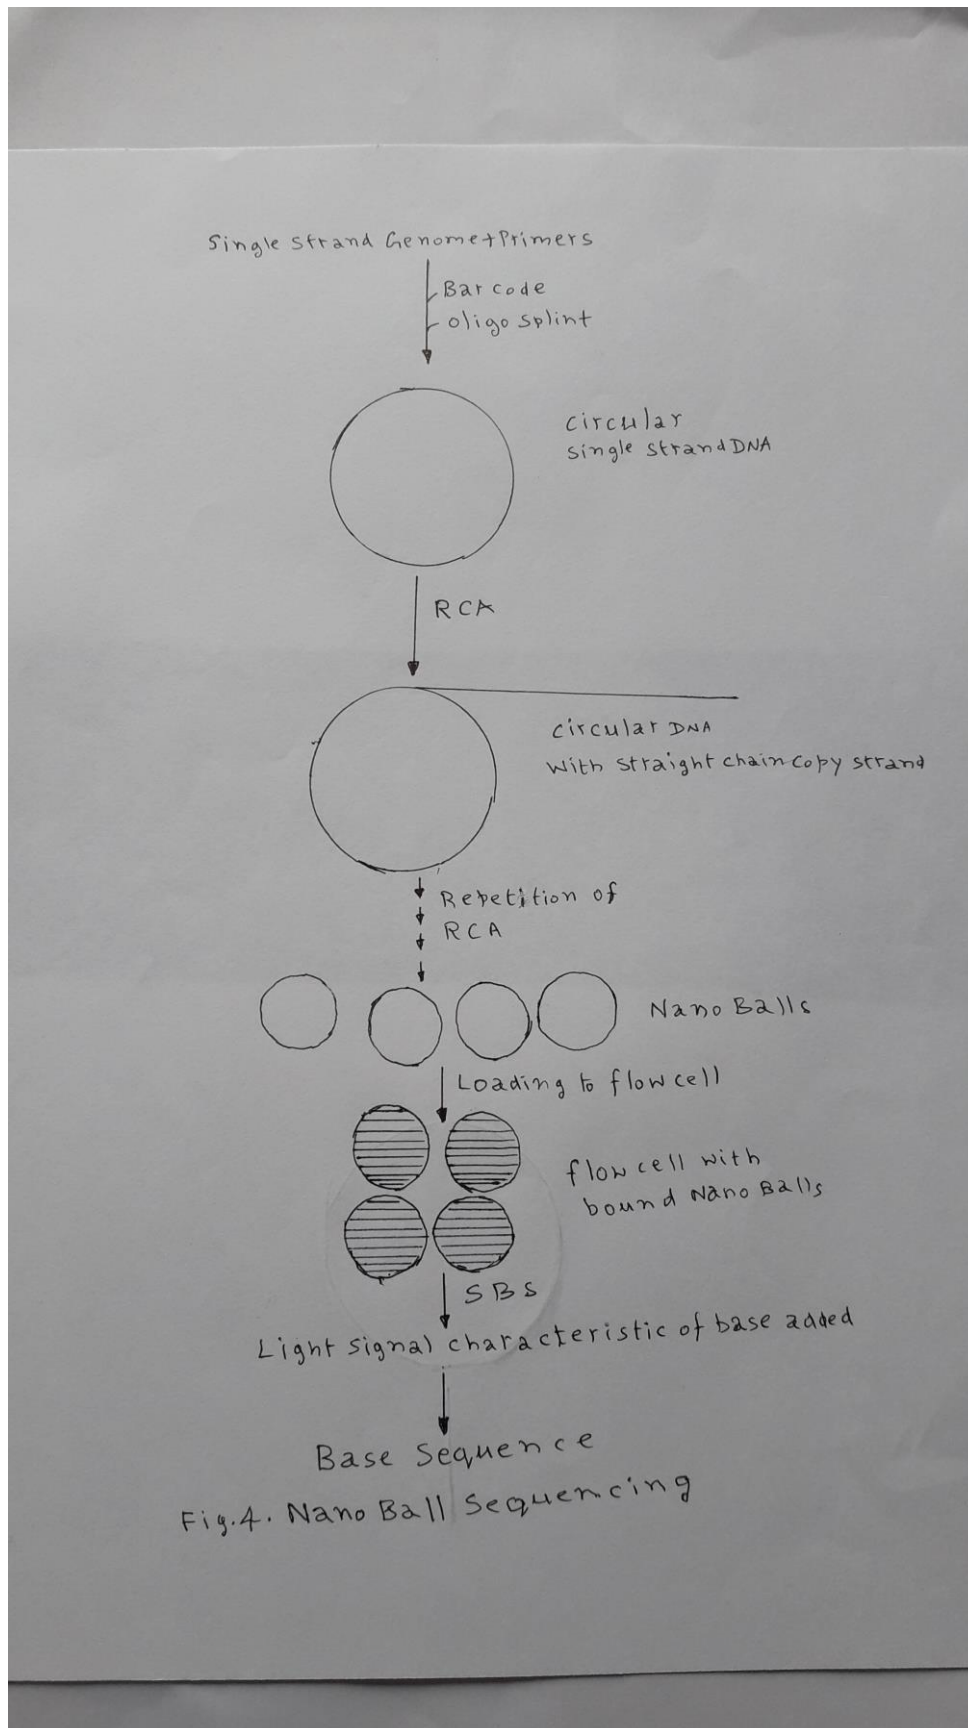 Single strand Genome+Primers
Bar code
oligo splint
circular
single strand DNA
RCA
circular DNA
with straight chain copy strand
Repetition of
RCA
Nano Balls
Loading to flow cell
flow cell with
bound Nano Balls
SBS
Light signal characteristic of base added
Base Sequence
Fig.4. Nano Ball Sequencing